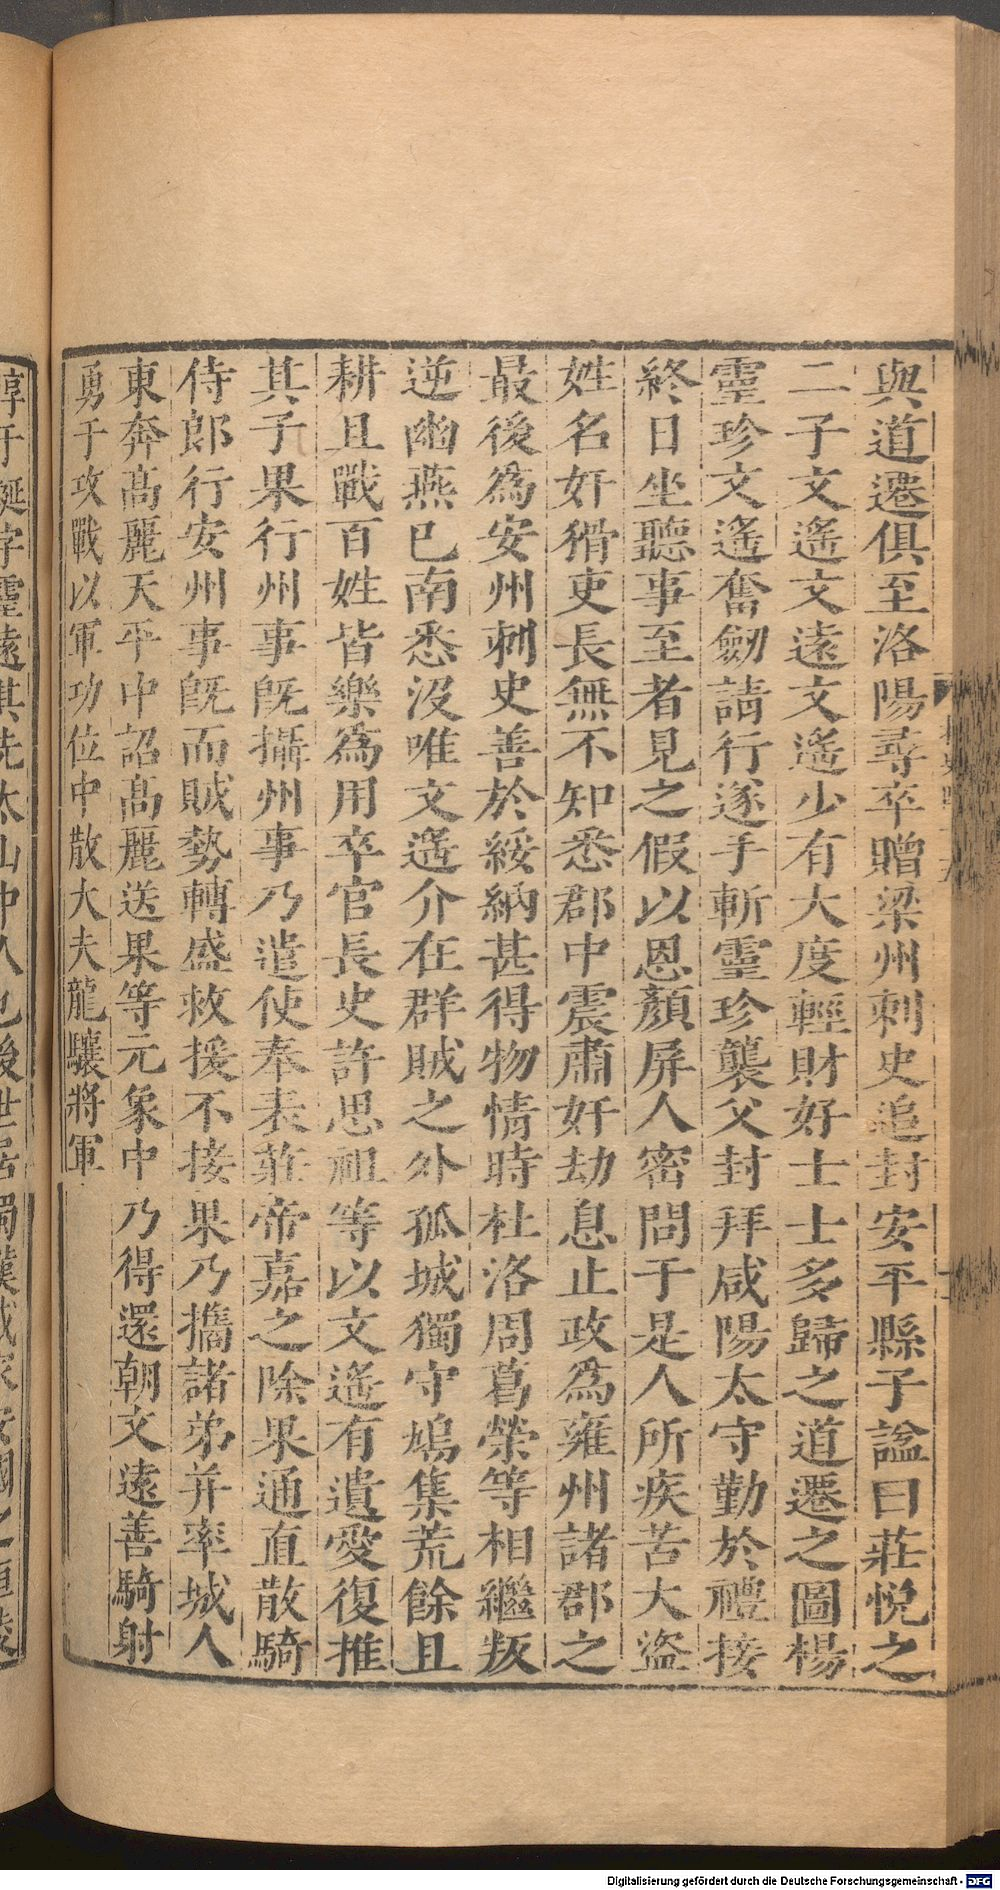 與道遷俱至洛陽尋卒贈梁州刺史追封安平縣子諡曰莊悅之
二子文遙文遠文遙少有大度輕財好士士多歸之道遷之圖楊
靈珍文遙奮劒請行遂手斬靈珍襲父封拜咸陽太守勤於禮接
終日坐聽事至者見之假以恩顏屏人密問于是人所疾苦大盜
姓名奸猾吏長無不知悉郡中震肅奸劫息止政為雍州諸郡之
最後為安州刺史善於綏納甚得物情時杜洛周葛榮等相繼叛
逆幽燕已南悉沒唯文遙介在群賊之外孤城獨守鳩集荒餘且
耕且戰百姓皆樂為用卒官長史許思祖等以文遙有遺愛復推
其子果行州事既攝州事乃遣使奉表莊帝嘉之除果通直散騎
侍郎行安州事既而賊勢轉盛救援不接果乃攜諸弟并率城人
東奔高麗天平中詔高麗送果等元象中乃得還朝文遠善騎射
勇于攻戰以軍功位中散大夫龍驤將軍
淳于誕字靈遠其先太山博人也後世居蜀漢或家安國之桓陵
Digitalisierung gefördert durch die Deutsche Forschungsgemeinschaft - DFG